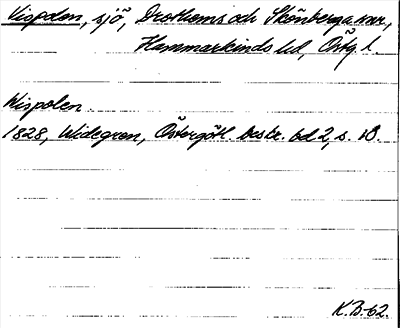 Vispolen, sjö, Drothems och Skönberga snr,
Hammarkinds hd, Östg l.
Wispolen
1828, Widegren, Östergötl. beskr. bd 2, s. 10.
K.B-62.